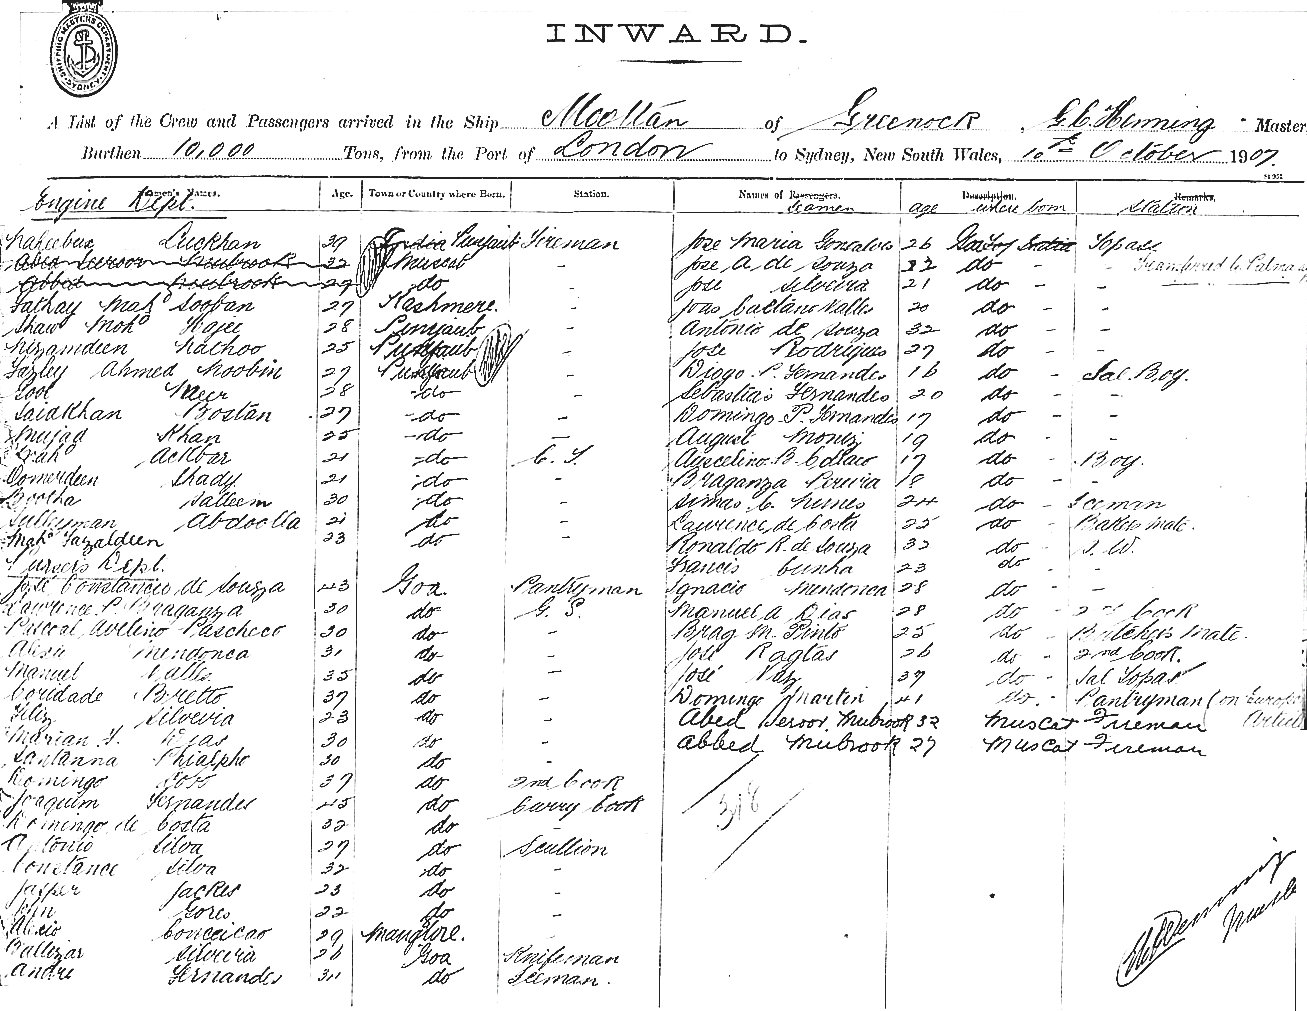 SHIPPING MASTERS DEPARTMENT SYDNEY
INWARD.
A List of the Crew and Passengers arrived in the Ship Mooltan of Greenock, G.C. Henning Master
Burthen 10,000 Tons, from the Port of London to Sydney, New South Wales, 10th October 1907.
Names. Age. Town or Country where Born. Station.
Engine Dept.
Luckhan 39 India Punjaub Fireman
Mubrook 32 Muscat -
Abbed Mubrook 27 do -
Fathay Mahd Sooban 27 Kashmere. -
Shaw Mohd Hajee 28 Punjaub -
Nizamdeen Nathoo 25 Punjaub -
Fazley Ahmed Moobin 27 Punjaub -
Meer 28 do -
Saidkhan Bostan 27 do -
Mujad Khan 25 do -
Ackbar 21 do C. S.
Oomerdeen Shady 21 do -
Bootha Salleem 30 do -
Sulleyman Abdoolla 21 do -
Mahd Fazaldeen 23 do -
Pursers Dept.
José Constancio de Souza 43 Goa. Pantryman
Lawrence P. Braganza 30 do G. S.
Pascoal Avelino Pascheco 30 do -
Mendonca 31 do -
Manuel Valles 35 do -
Caridade Bretto 37 do -
Feliz Silveira 23 do -
Marian F. Dias 30 do -
Santanna Phialpho 30 do -
Domingo 37 do 2nd Cook
Joaquim Fernandes 45 do Curry Cook
Domingo de Costa 32 do
Antonio Silva 27 do Scullion
Constance Silva 32 do -
Jasper Jackes 23 do -
Gores 22 do -
Conceicao 29 Manglore. -
Baltezar Silveira 26 Goa Knifeman
Andre Fernandes do Iceman.
Names of Passengers. Seamen age Description. where born Remarks. Station
Jose Maria Gonsalves 26 Goa India Topass
Jose A. de Souza 32 do - Transferred to Palma
Jose Silveira 21 do - -
Joas Caetano Valles 20 do - -
Antonio de Souza 32 do - -
Jose Rodrigues 27 do - -
Diogo P. Fernandes 16 do - Sal. Boy.
Sebastias Fernandes 20 do - -
Domingo P. Fernandes 17 do - -
August Moniz 19 do - -
B. Colaco 17 do - Boy.
Braganza Pereira 18 do - -
C. Nunes 24 do - Iceman
Lawrence de Costa 25 do - Bakers Mate.
Ronaldo R. de Souza 32 do - S. W.
Francis Cunha 23 do - -
Ignacio Mendonca 28 do - -
Manuel A. Dias 28 do - 2nd Cook
Brag. M. Pinto 25 do - Butchers Mate.
José Ragtas 26 do - 2nd Cook.
José Vaz 37 do - Sal Topas
Domingo Martin 41 do - Pantryman (on Europn Articles
Abed Seroor Mubrook 32 Muscat Fireman
Abbed Mubrook 27 Muscat Fireman
318
G.C. Henning
Master